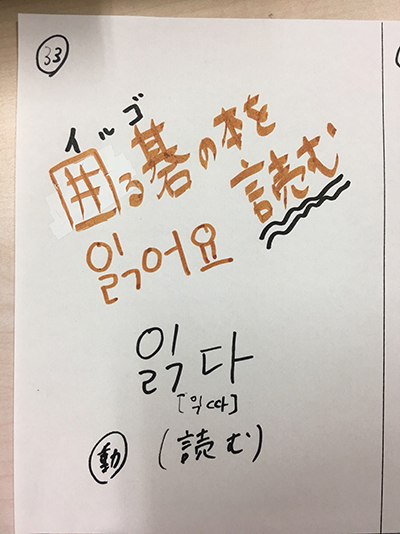 33
イルゴ
囲る碁の本を
読む
읽어요
읽다
[익따]
動 (読む)